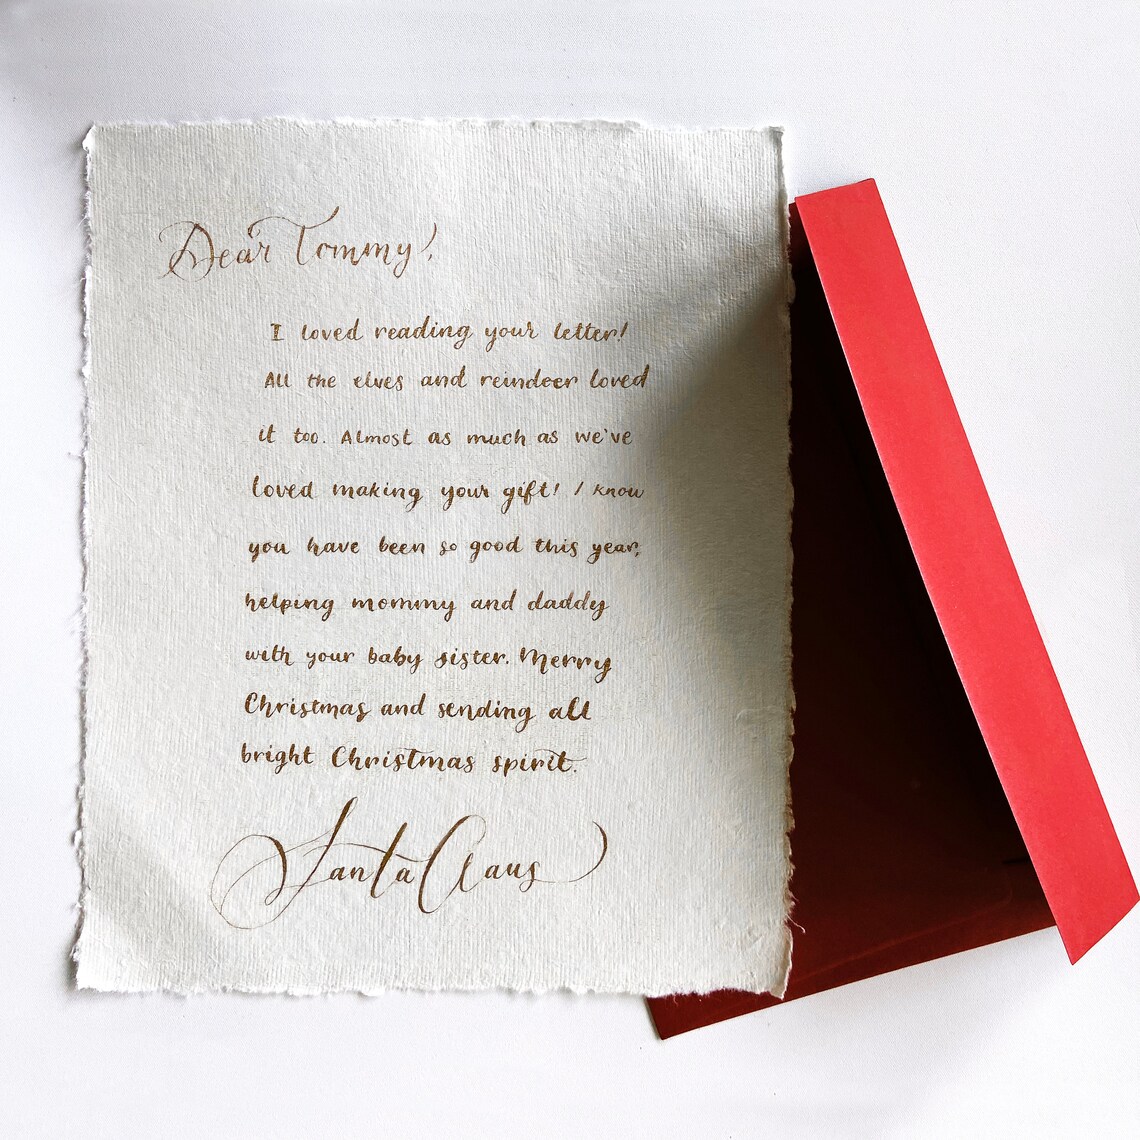 Dear Tommy,
I loved reading your letter!
All the elves and reindeer loved
it too. Almost as much as we've
loved making your gift! I know
you have been so good this year,
helping mommy and daddy
with your baby sister. Merry
Christmas and sending all
bright Christmas spirit.
Santa Claus